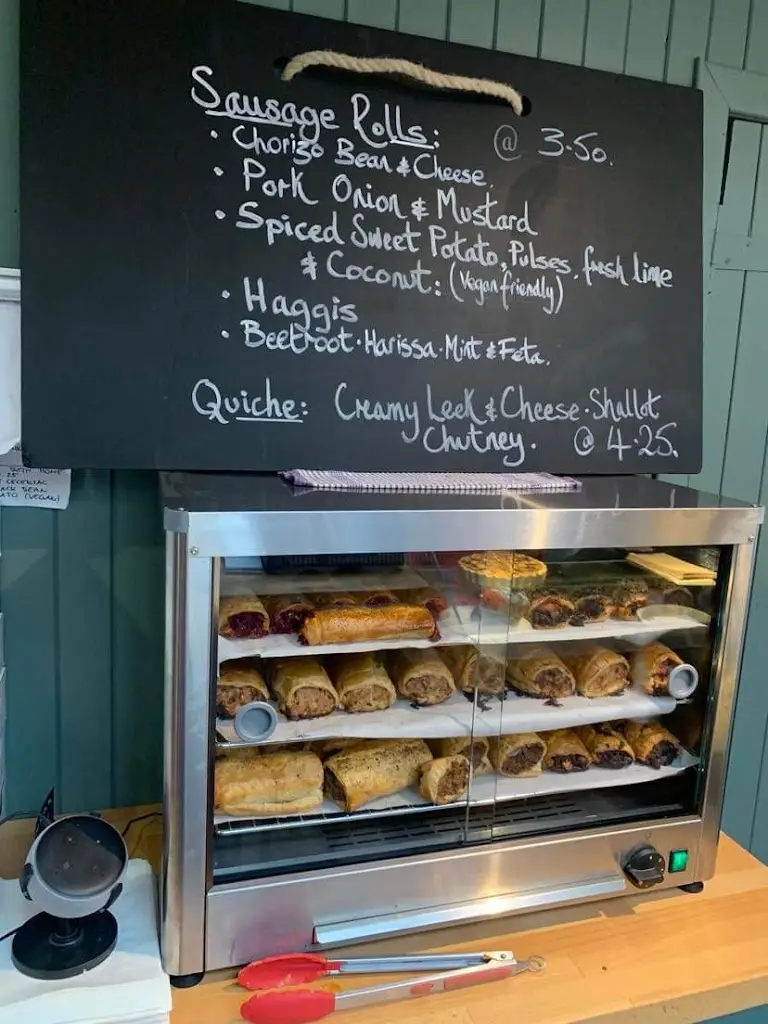 Sausage Rolls: @ 3.50.
• Chorizo Bean & Cheese.
• Pork Onion & Mustard
• Spiced Sweet Potato, Pulses, fresh lime
& Coconut: (Vegan friendly)
• Haggis
• Beetroot · Harissa · Mint & Feta.
Quiche: Creamy Leek & Cheese · Shallot
Chutney. @ 4.25.
BEAN
(VEGAN)